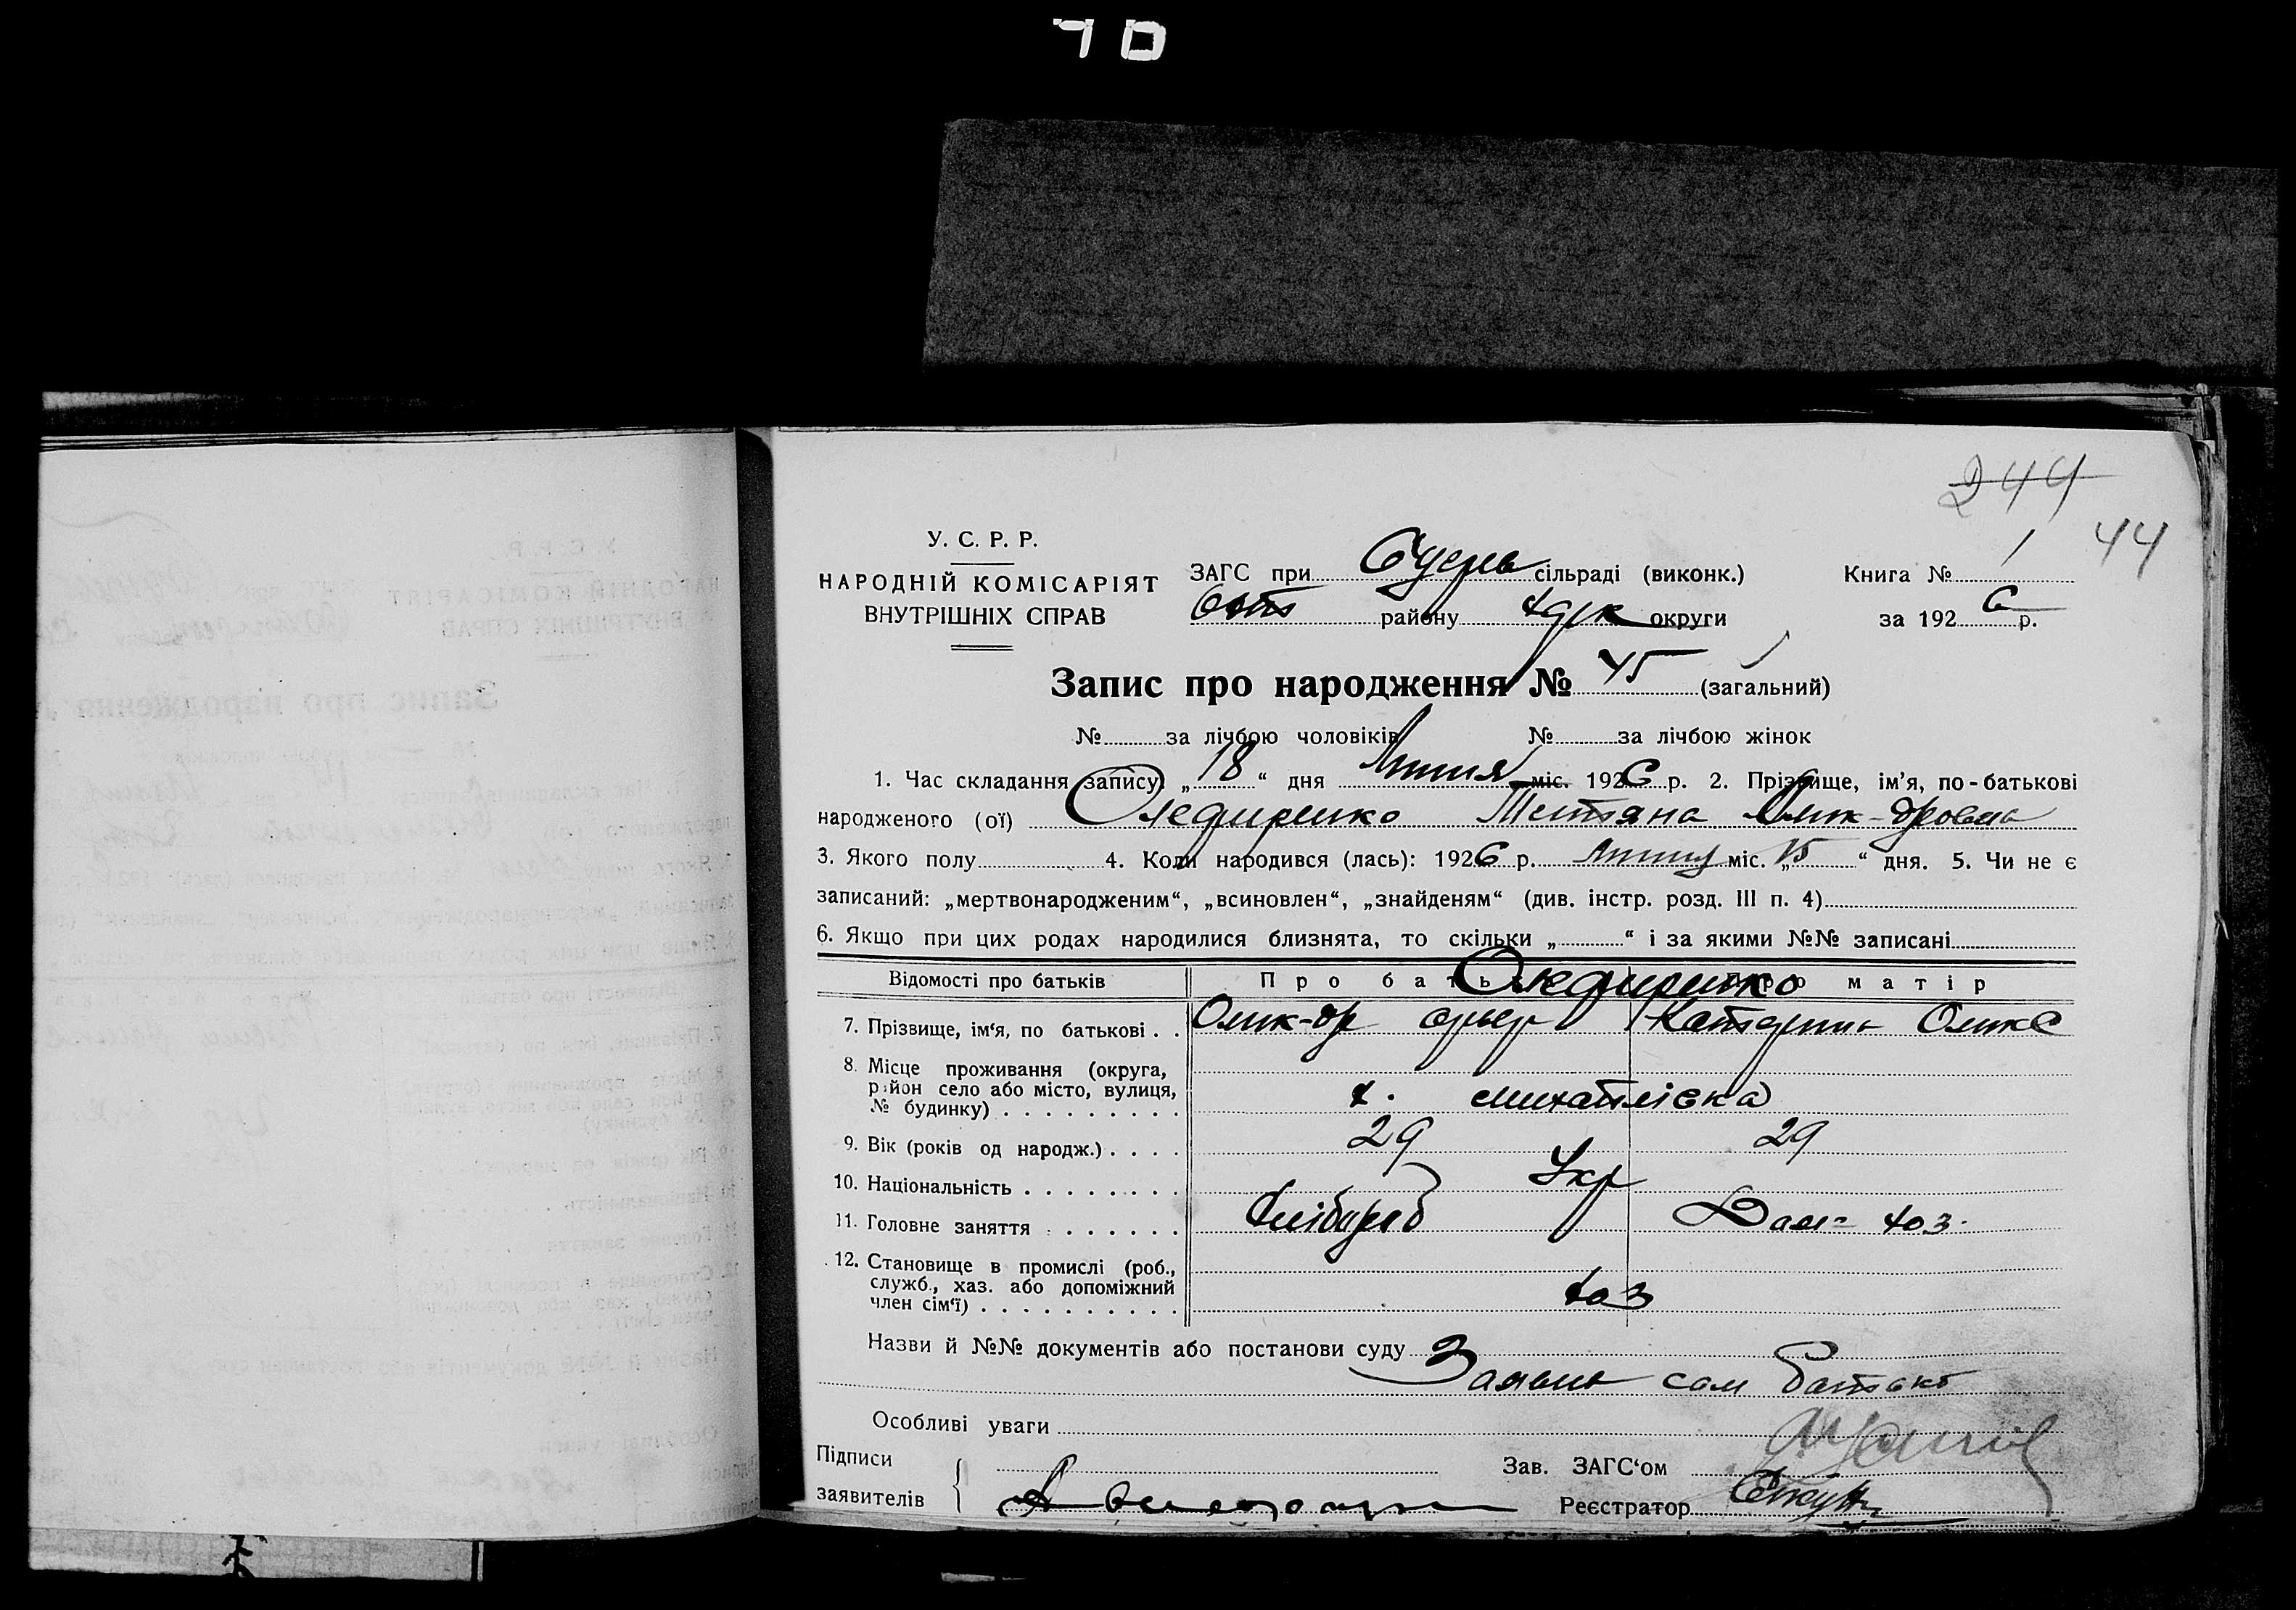 244
44
У. С. Р. Р.
НАРОДНІЙ КОМІСАРІЯТ
ВНУТРІШНІХ СПРАВ
ЗАГС при сільраді (виконк.)
району округи
Книга № 1
за 1926 р.
Запис про народження № 45 (загальний)
№ за лічбою чоловіків № за лічбою жінок
1. Час складання запису „18“ дня Липня міс. 1926 р. 2. Прізвище, ім’я, по-батькові
народженого (ої) Тетяна
3. Якого полу 4. Коли народився (лась): 1926 р. Липня міс. „15“ дня. 5. Чи не є
записаний: „мертвонародженим“, „всиновлен“, „знайденям“ (див. інстр. розд. III п. 4)
6. Якщо при цих родах народилися близнята, то скільки „ “ і за якими №№ записані
Відомості про батьків Про батька Про матір
7. Прізвище, ім‘я, по батькові . .
8. Місце проживання (округа,
район село або місто, вулиця,
№ будинку) . . . . . . . . . х. Михайлівка
9. Вік (років од народж.) . . . . 29 29
10. Національність . . . . . . . . Укр
11. Головне заняття . . . . . . . Хлібороб Дом- хоз.
12. Становище в промислі (роб.,
служб., хаз. або допоміжний
член сім‘ї) . . . . . . . . . . хоз
Назви й №№ документів або постанови суду Заявив
сам батько
Особливі уваги
Підписи
заявителів
Зав. ЗАГС‘ом
Реєстратор